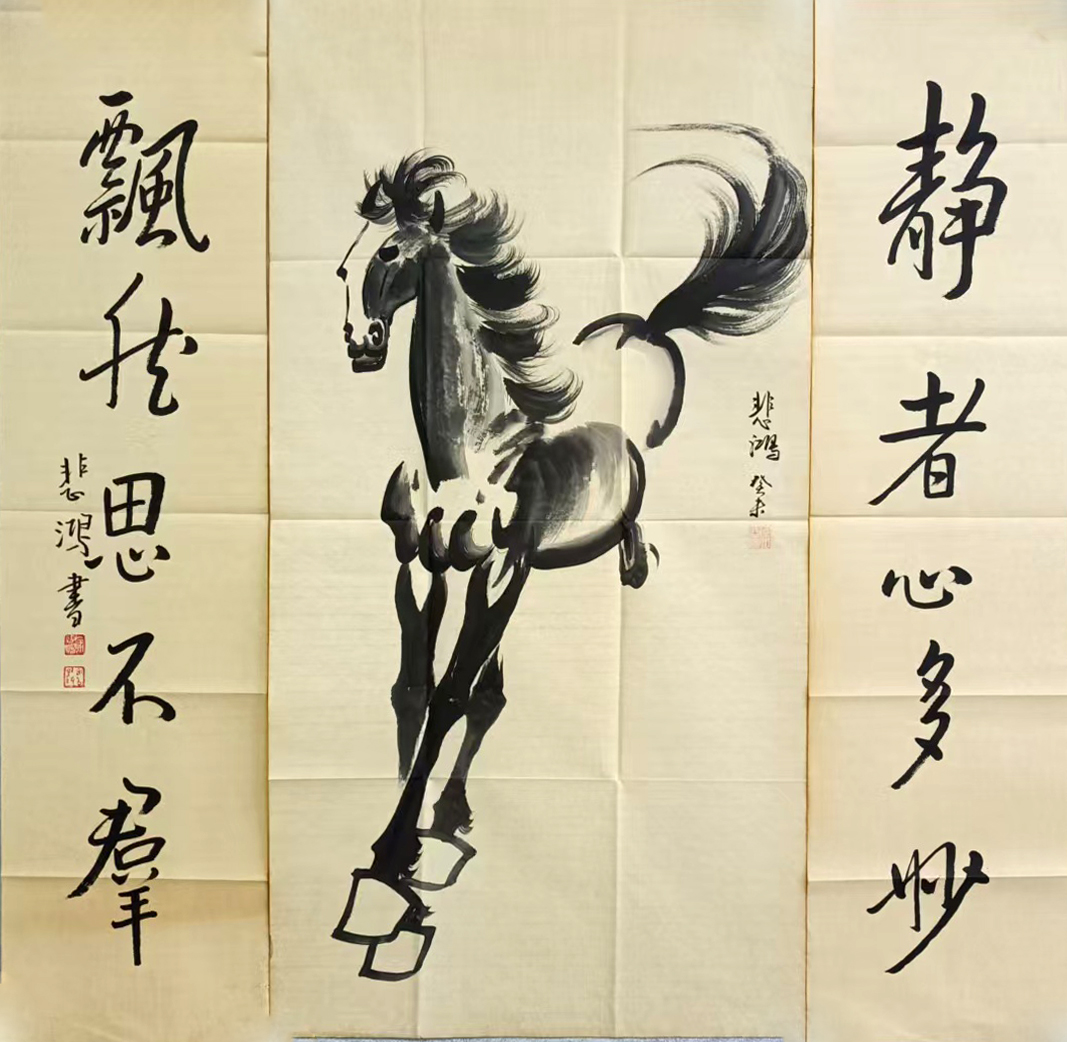 静者心多妙
悲鴻 癸未
飄然思不羣
悲鴻書